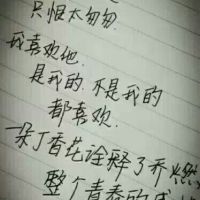 只恨太匆匆.
我喜欢他.
是我的.不是我的
都喜欢.
一朵丁香花诠释了乔燃
整个青春的